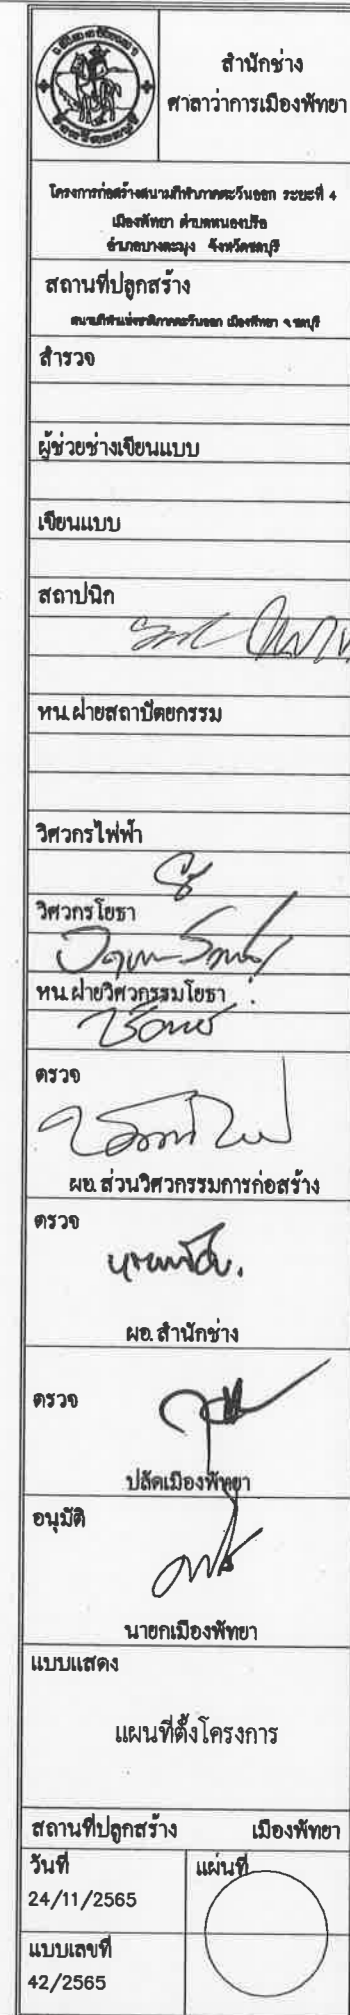 สำนักช่าง
ศาลาว่าการเมืองพัทยา
โครงการก่อสร้างสนามกีฬาภาคตะวันออก ระยะที่ 4
เมืองพัทยา ตำบลหนองปรือ
อำเภอบางละมุง จังหวัดชลบุรี
สถานที่ปลูกสร้าง
สนามกีฬาแห่งชาติภาคตะวันออก เมืองพัทยา จ.ชลบุรี
สำรวจ
ผู้ช่วยช่างเขียนแบบ
เขียนแบบ
สถาปนิก
หน.ฝ่ายสถาปัตยกรรม
วิศวกรไฟฟ้า
วิศวกรโยธา
หน.ฝ่ายวิศวกรรมโยธา
ตรวจ
ผอ.ส่วนวิศวกรรมการก่อสร้าง
ตรวจ
ผอ.สำนักช่าง
ตรวจ
ปลัดเมืองพัทยา
อนุมัติ
นายกเมืองพัทยา
แบบแสดง
แผนที่ตั้งโครงการ
สถานที่ปลูกสร้าง เมืองพัทยา
วันที่ แผ่นที่
24/11/2565
แบบเลขที่
42/2565